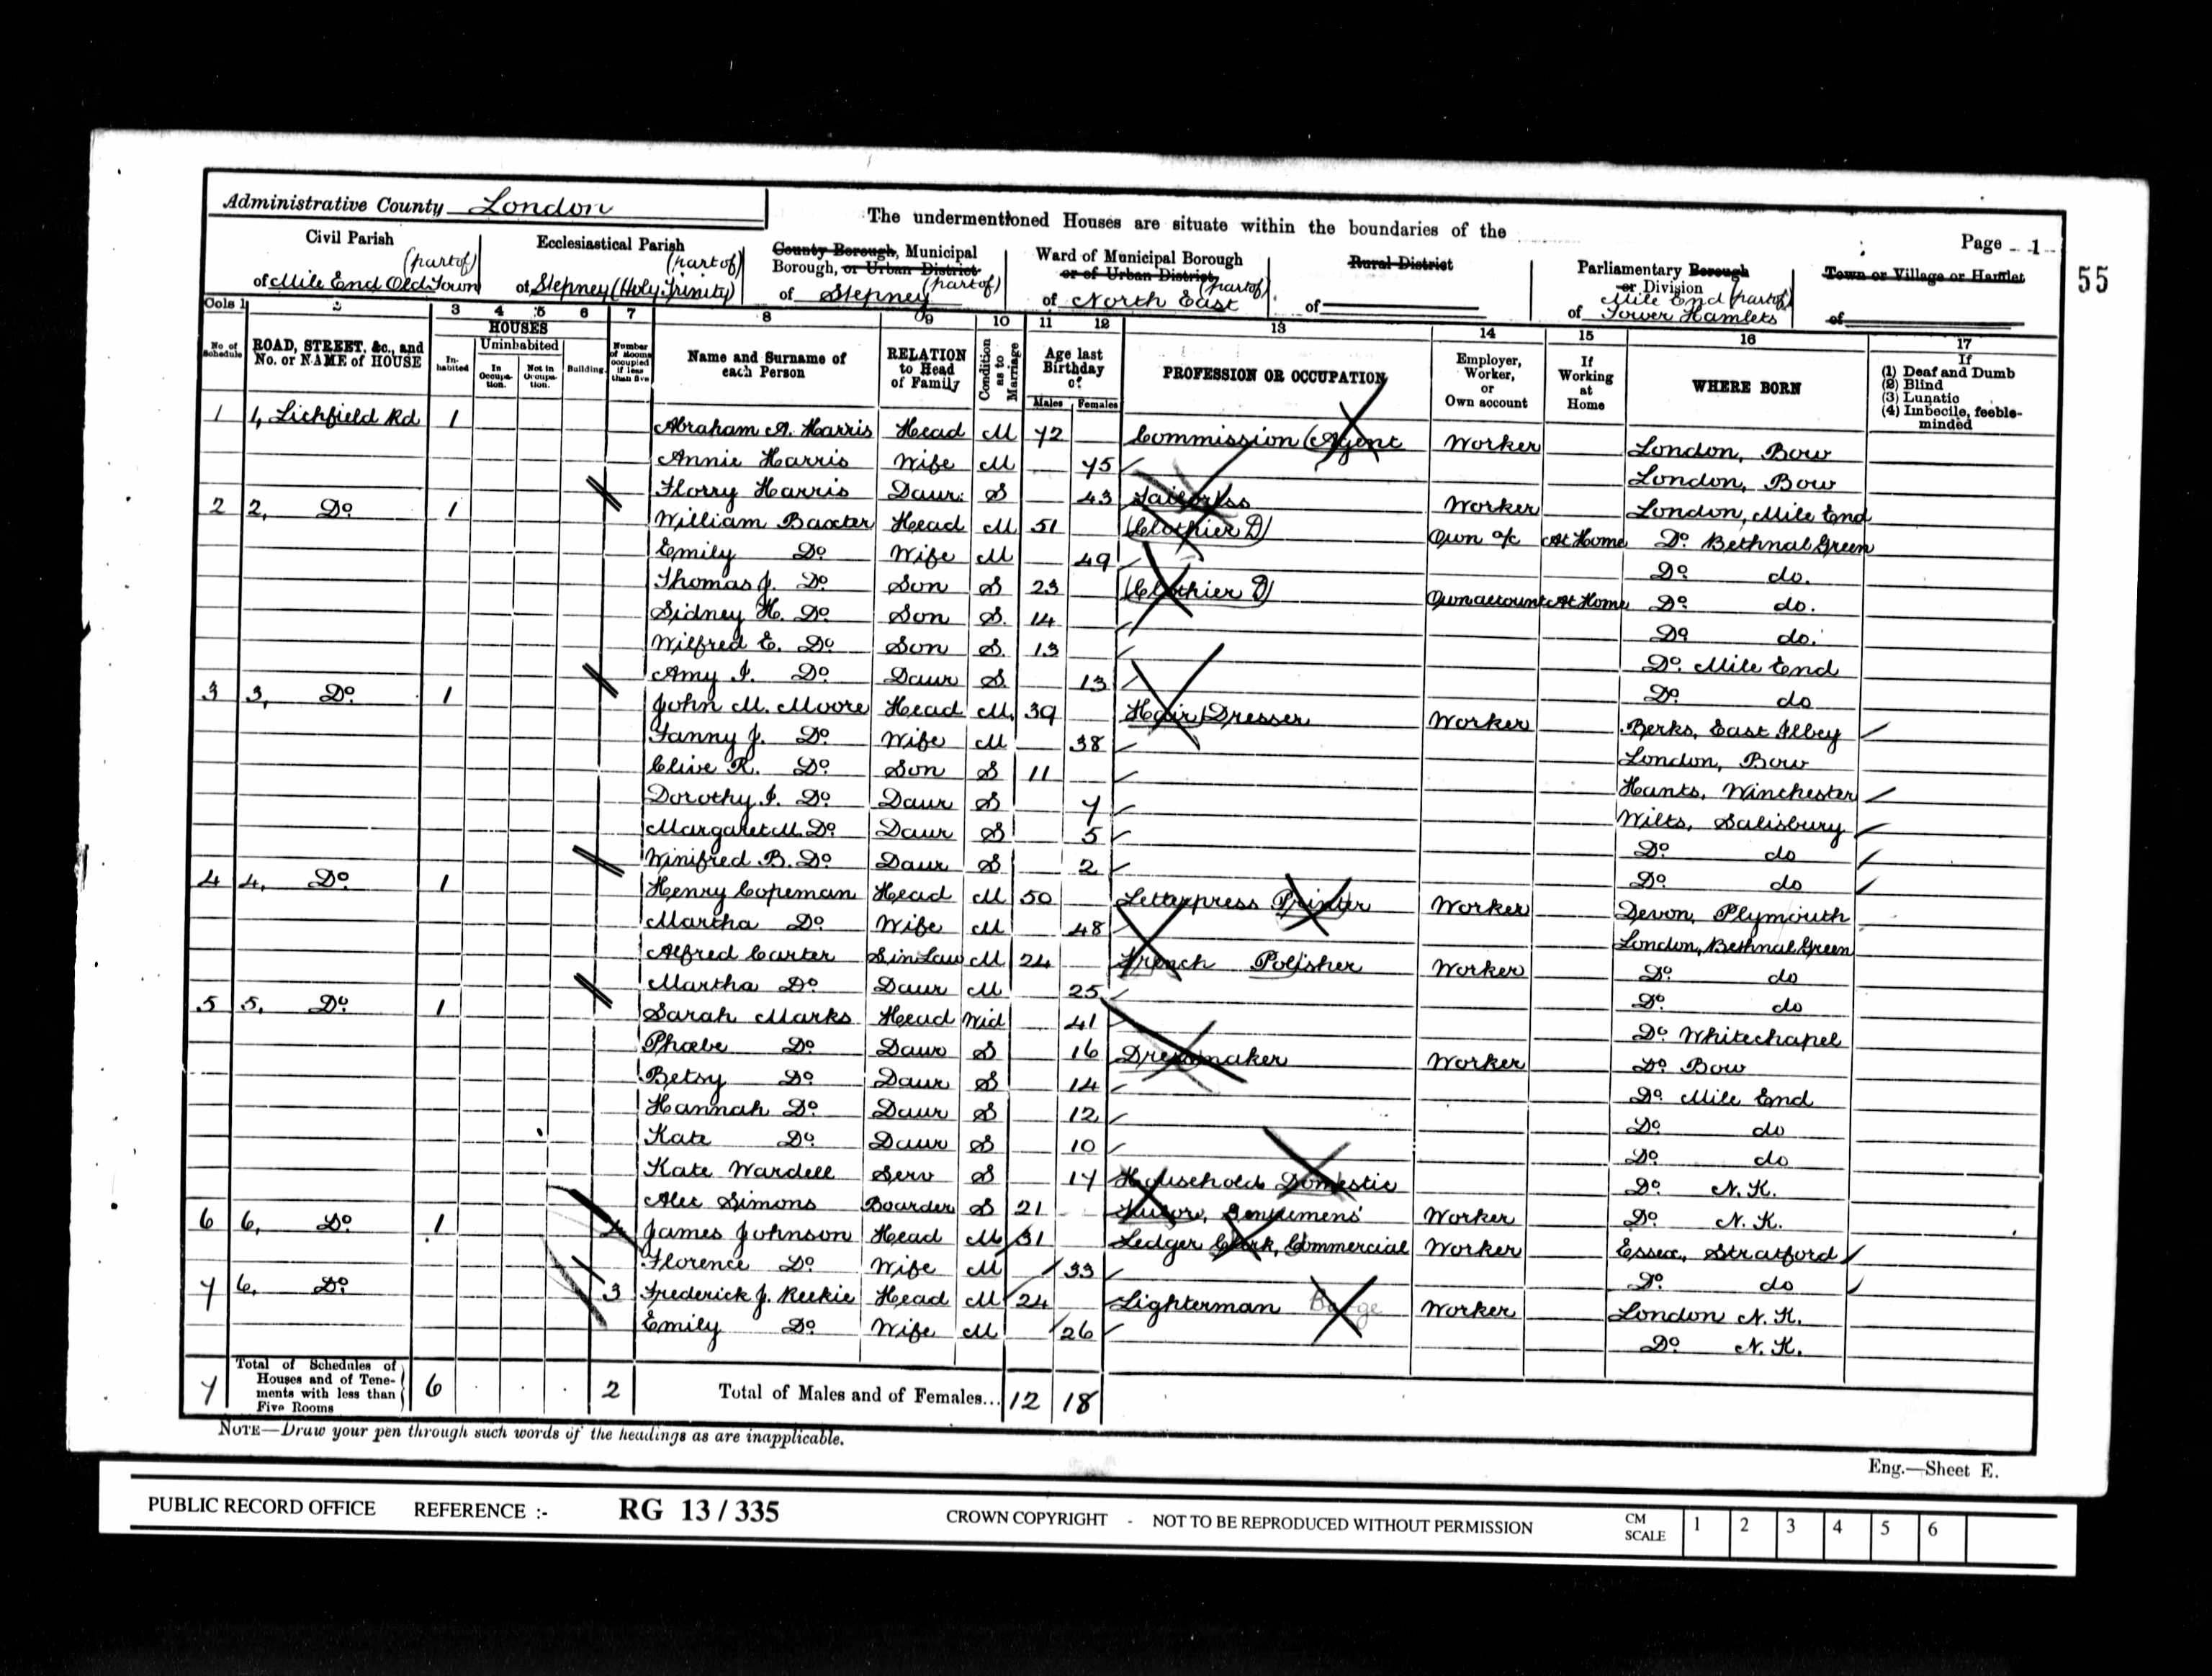 Administrative County London
The undermentioned Houses are situate within the boundaries of the
Page 1
55
Civil Parish (part of) of Mile End Old Town
Ecclesiastical Parish (part of) of Stepney (Holy Trinity)
County Borough, Municipal Borough, or Urban District (part of) of Stepney
Ward of Municipal Borough or of Urban District, (part of) of North East
Rural District of
Parliamentary Borough or Division of Mile End (part of) Tower Hamlets
Town or Village or Hamlet of
Cols 1 2 3 4 5 6 7 8 9 10 11 12 13 14 15 16 17
No. of Schedule
ROAD, STREET, &c., and No. or NAME of HOUSE
HOUSES
Inhabited
Uninhabited
In Occupation.
Not in Occupation.
Building.
Number of Rooms occupied if less than five
Name and Surname of each Person
RELATION to Head of Family
Condition as to Marriage
Age last Birthday of
Males Females
PROFESSION OR OCCUPATION
Employer, Worker, or Own account
If Working at Home
WHERE BORN
If (1) Deaf and Dumb (2) Blind (3) Lunatic (4) Imbecile, feeble-minded
1 1, Lichfield Rd 1 Abraham A. Harris Head M 72 Commission Agent Worker London, Bow
Annie Harris Wife M 75 London, Bow
Florry Harris Daur. S 43 Tailoress Worker London, Mile End
2 2, Do 1 William Baxter Head M 51 Clothier D Own a/c At Home Do Bethnal Green
Emily Do Wife M 49 Do do.
Thomas J. Do Son S 23 Clothier D Own account At Home Do do.
Sidney H. Do Son S. 14 Do do.
Wilfred E. Do Son S. 13 Do Mile End
Amy I. Do Daur S 13 Do do
3 3, Do 1 John M. Moore Head M. 39 Hair Dresser Worker Berks, East Ilbey
Fanny J. Do Wife M 38 London, Bow
Clive R. Do Son S 11 Hants, Winchester
Dorothy I. Do Daur S 7 Wilts, Salisbury
Margaret M. Do Daur S 5 Do do
Winifred B. Do Daur S 2 Do do
4 4, Do 1 Henry Copeman Head M 50 Letterpress Printer Worker Devon, Plymouth
Martha Do Wife M 48 London, Bethnal Green
Alfred Carter S in Law M 24 French Polisher Worker Do do
Martha Do Daur M 25 Do do
5 5, Do 1 Sarah Marks Head Wid 41 Do Whitechapel
Phoebe Do Daur S 16 Dressmaker Worker Do Bow
Betsy Do Daur S 14 Do Mile End
Hannah Do Daur S 12 Do do
Kate Do Daur S 10 Do do
Kate Wardell Serv S 17 Household Domestic Do N. K.
Alec Simons Boarder S 21 Gentlemens' Worker Do N. K.
6 6, Do 1 James Johnson Head M 31 Ledger Clerk, Commercial Worker Essex, Stratford
Florence Do Wife M 33 Do do
7 6, Do 3 Frederick J. Reekie Head M 24 Lighterman Barge Worker London N. K.
Emily Do Wife M 26 Do N. K.
7 Total of Schedules of Houses and of Tenements with less than Five Rooms 6 2 Total of Males and of Females... 12 18
NOTE—Draw your pen through such words of the headings as are inapplicable.
Eng.—Sheet E.
PUBLIC RECORD OFFICE REFERENCE :- RG 13 / 335 CROWN COPYRIGHT - NOT TO BE REPRODUCED WITHOUT PERMISSION CM SCALE 1 2 3 4 5 6